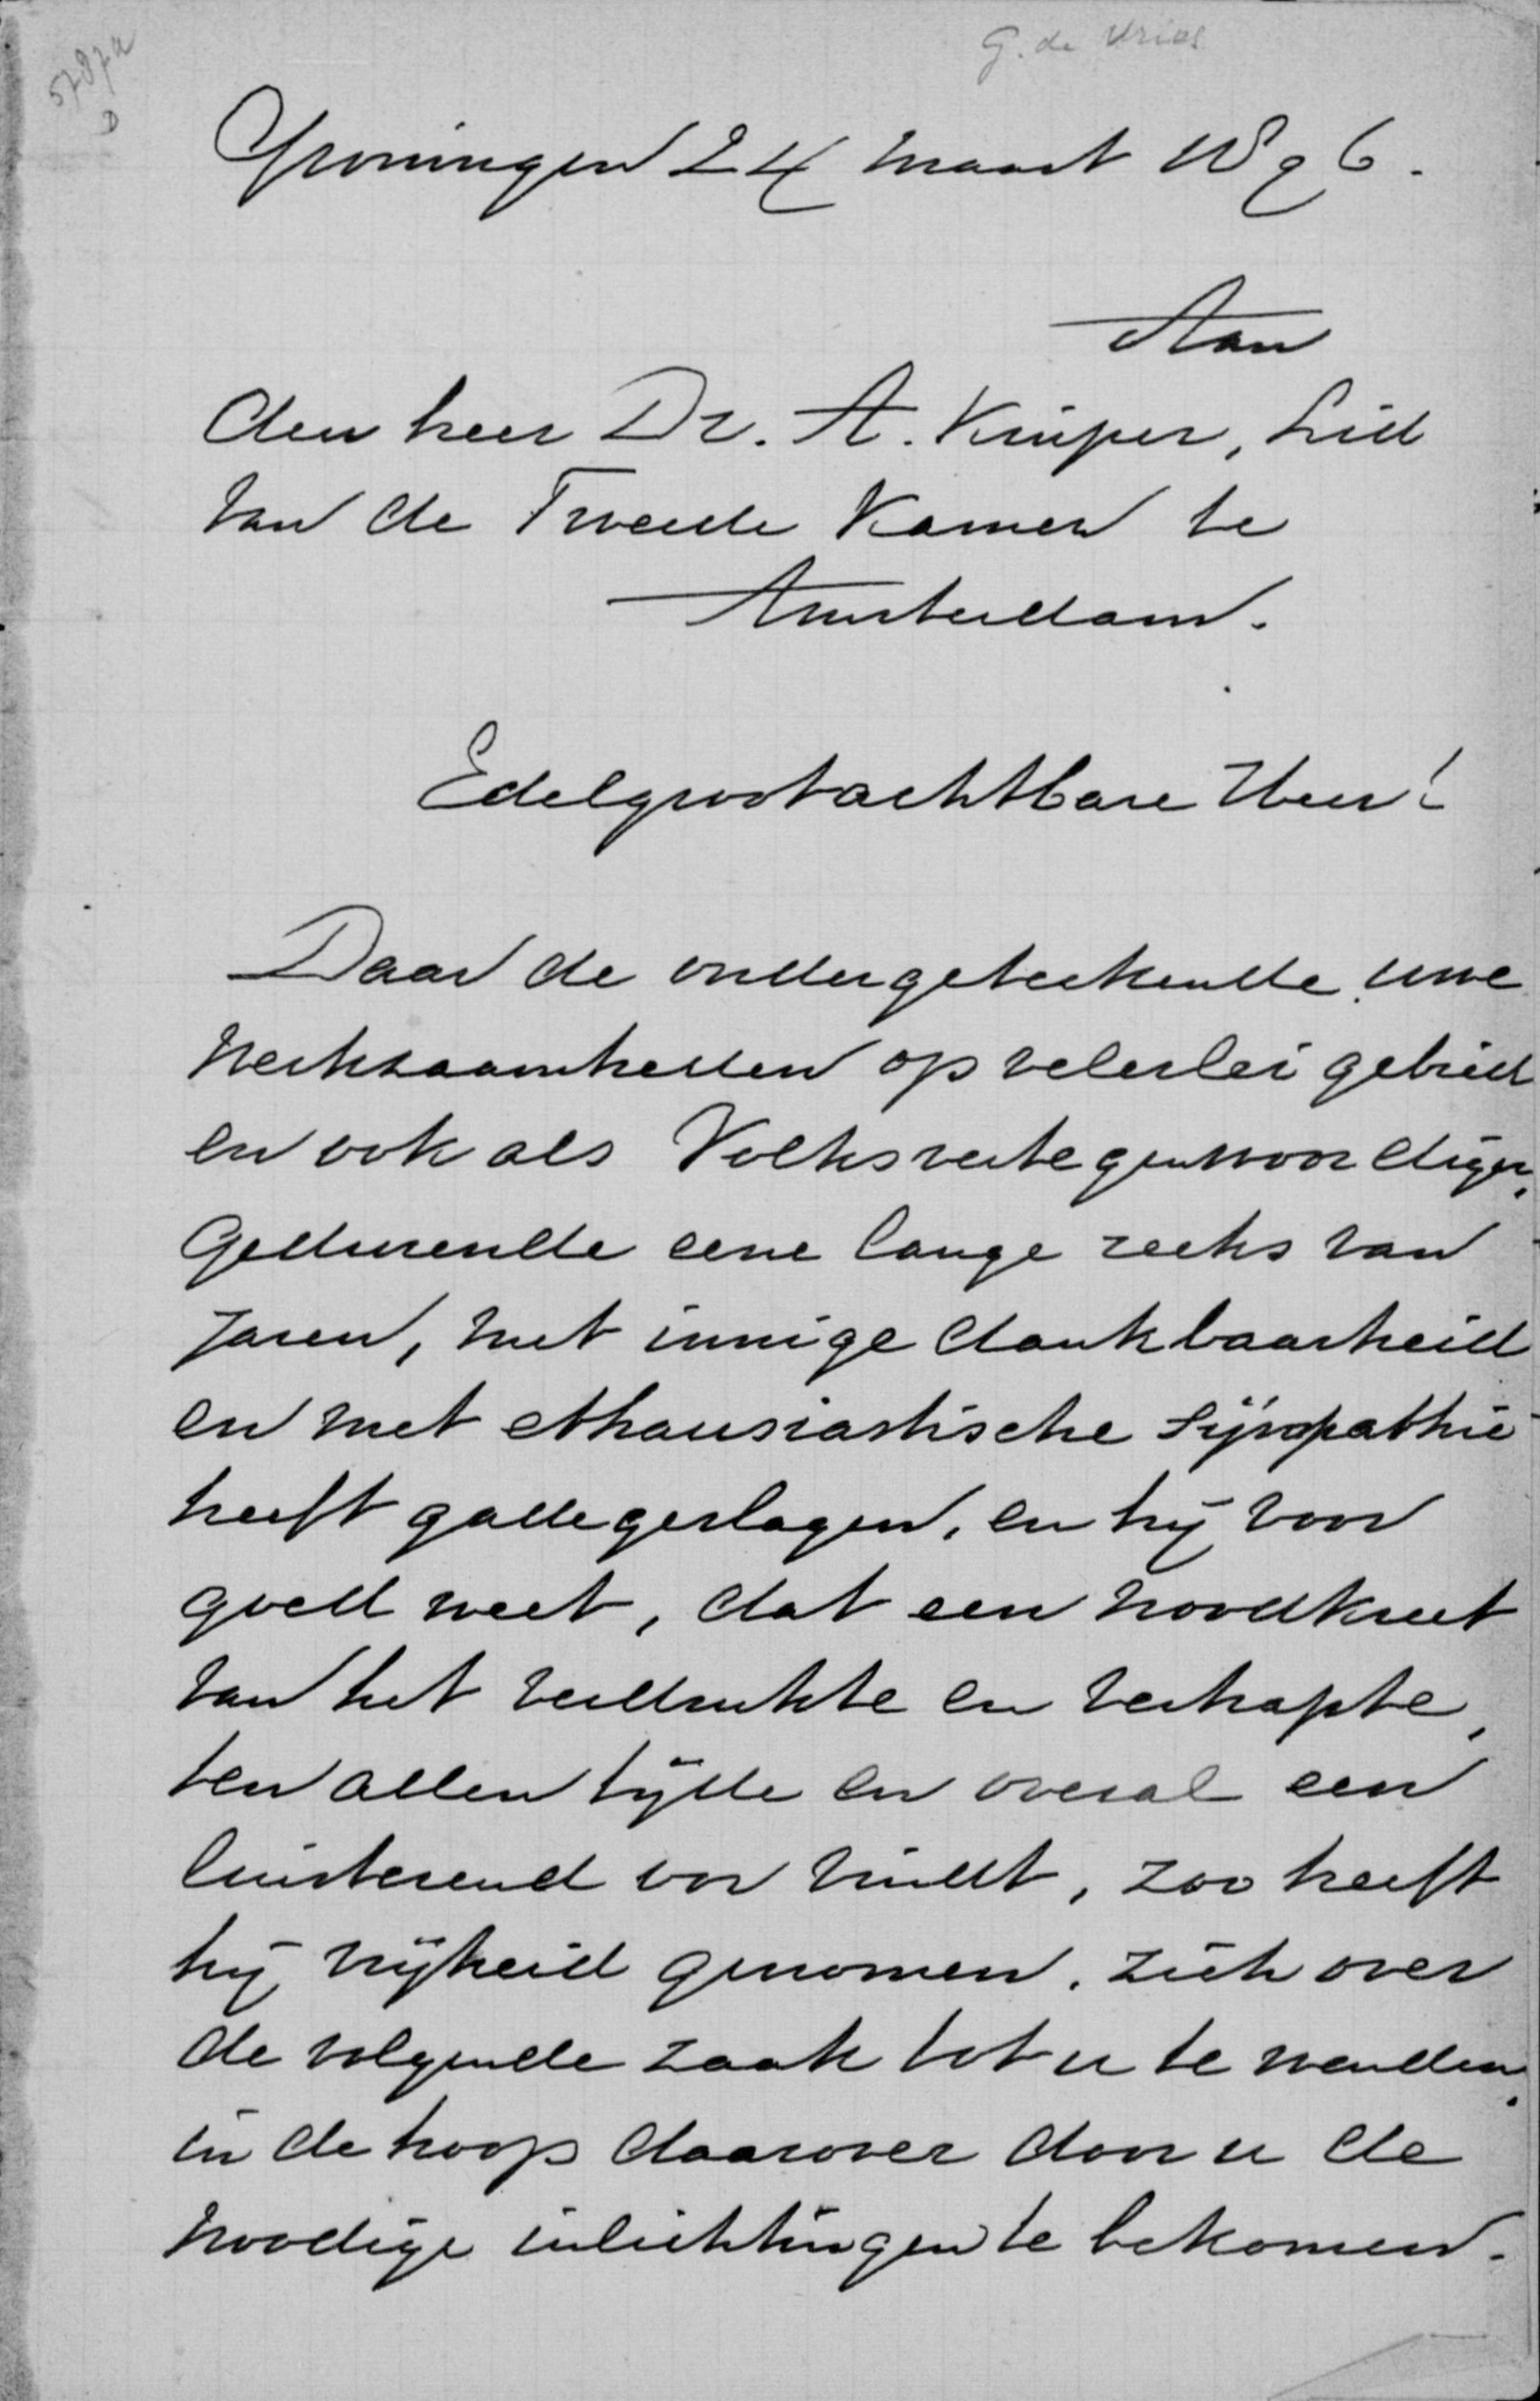 G. de Vries
5787a
D
Groningen 24 Maart 1896.
Aan
den heer Dr. A. Kuiper, Lid
van de Tweede Kamer te
Amsterdam.
Edelgrootachtbare Heer!
Daar de ondergeteekende uwe
werkzaamheden op velerlei gebied
en ook als Volksvertegenwoordiger,
gedurende eene lange reeks van
jaren, met innige dankbaarheid
en met ethousiastische sympathie
heeft gadegeslagen, en hij voor
goed weet, dat een noodkreet
van het verdrukte en vertrapte,
ten allen tijde en overal een
luisterend oor vindt, zoo heeft
hij vrijheid genomen, zich over
de volgende zaak tot u te wenden,
in de hoop daarover door u de
noodige inlichtingen te bekomen.